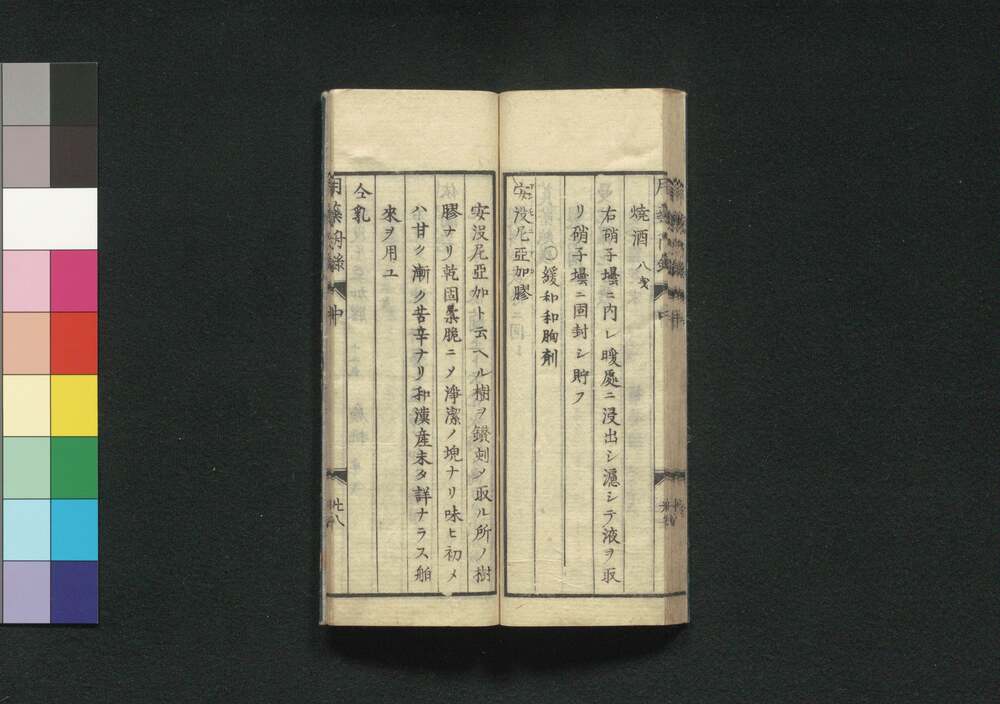 焼酒 八戔
右硝子壜ニ内レ暖處ニ浸出シ濾シテ液ヲ取
リ硝子壜ニ固封シ貯フ
○緩和和胸劑
安没尼亜加膠
安没尼亜加ト云ヘル樹ヲ鑚刺ノ取ル所ノ樹
膠ナリ乾固柔脆ニメ淨潔ノ塊ナリ味ヒ初メ
ハ甘ク漸ク苦辛ナリ和漢産未タ詳ナラス舶
來ヲ用ユ
仝乳
中
廿八